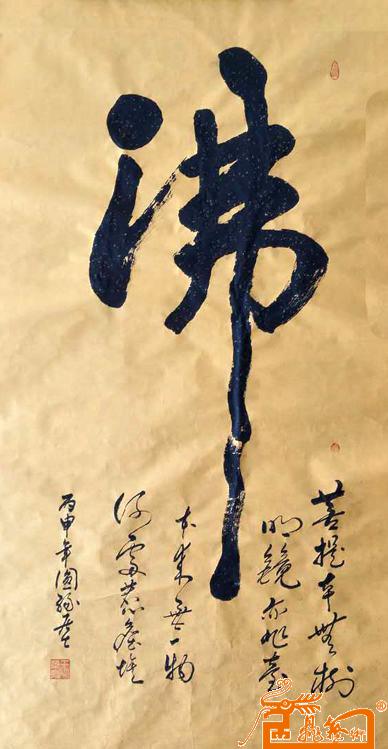 佛
菩提本無樹
明鏡亦非臺
本来無一物
何處惹塵埃
丙申年圓